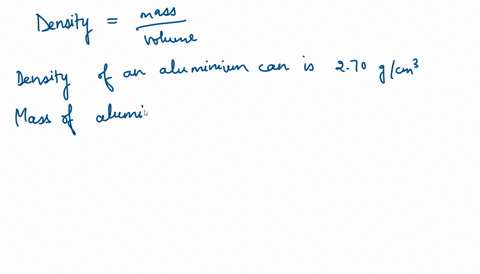 Density = mass / volume
Density of an aluminium can is 2.70 g/cm³
Mass of alumi